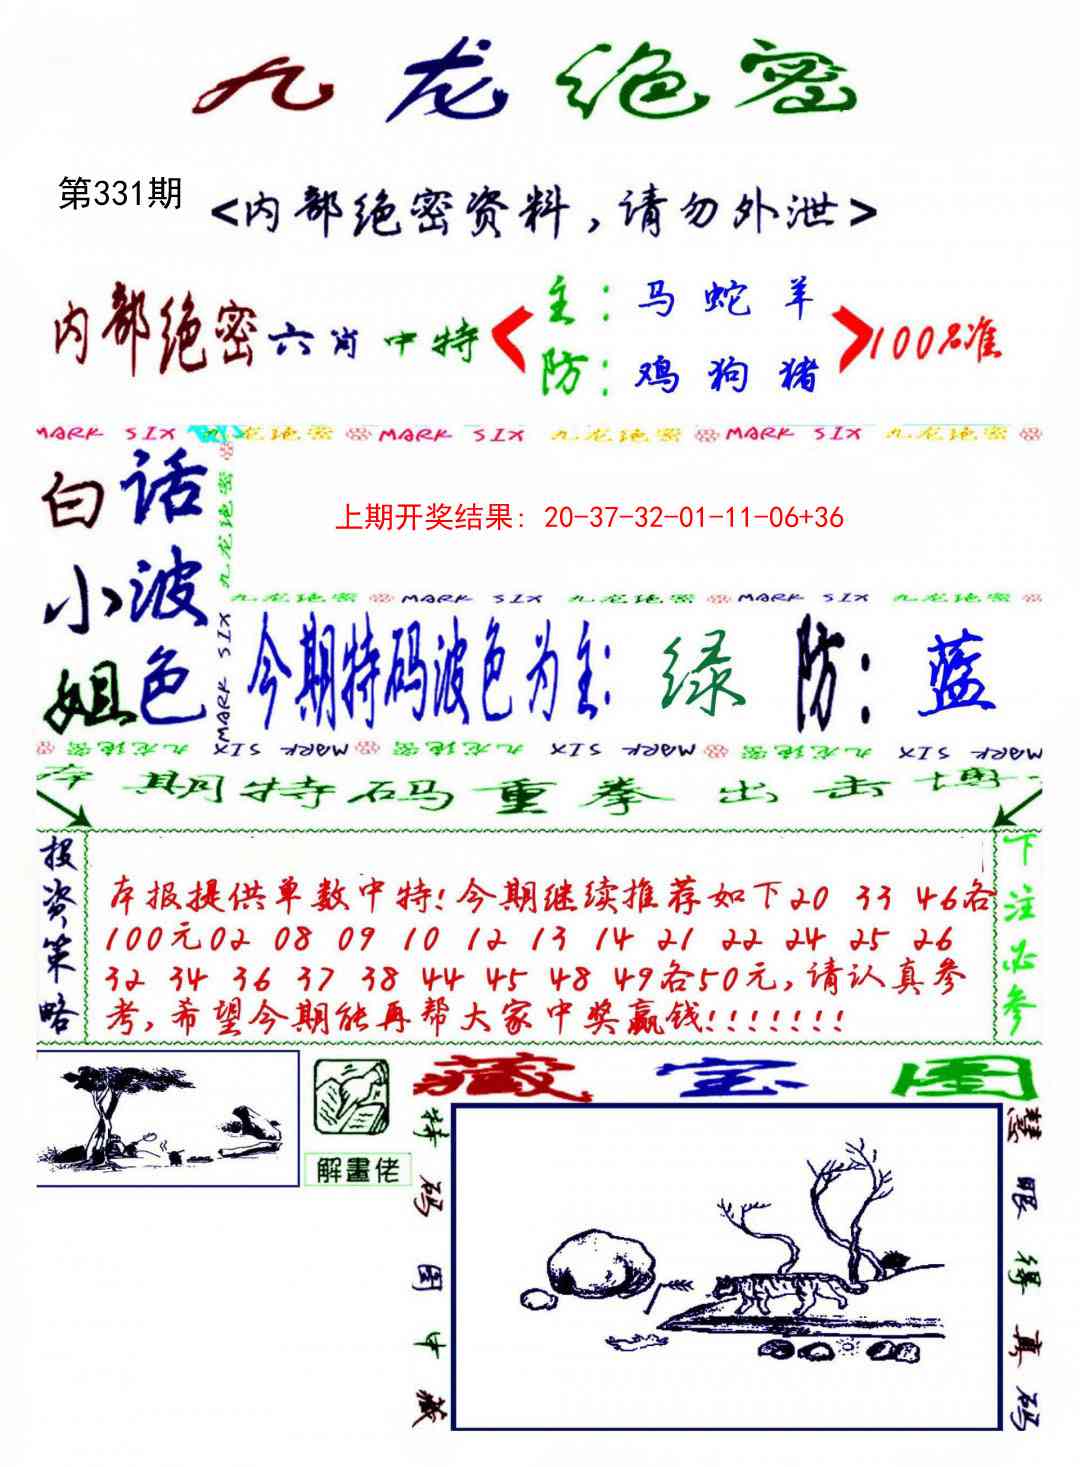 九龙绝密
第331期
<内部绝密资料,请勿外泄>
内部绝密六肖中特
主:马 蛇 羊
防:鸡 狗 猪
100%准
MARK SIX 九龙绝密 MARK SIX 九龙绝密 MARK SIX 九龙绝密
白话小波姐色
九龙绝密 MARK SIX
上期开奖结果: 20-37-32-01-11-06+36
九龙绝密 MARK SIX 九龙绝密 MARK SIX 九龙绝密
今期特码波色为主: 绿 防: 蓝
九龙绝密 MARK SIX 九龙绝密 MARK SIX 九龙绝密 MARK SIX
本期特码重拳出击博
投资策略
本报提供单数中特!今期继续推荐如下20 33 46各
100元02 08 09 10 12 13 14 21 22 24 25 26
32 34 36 37 38 44 45 48 49各50元,请认真参
考,希望今期能再帮大家中奖赢钱!!!!!!!
下注必参
解畫佬
藏宝图
特码图中藏
慧眼得真码